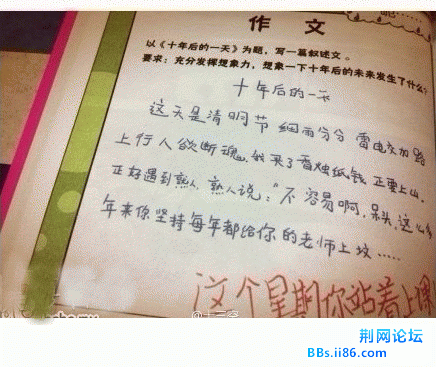 作文
以《十年后的一天》为题，写一篇叙述文。
要求：充分发挥想象力，想象一下十年后的未来发生了什么？
十年后的一天
这天是清明节 细雨分分 雷电交加 路
上行人欲断魂，我买了香烛纸钱 正要上山。
正好遇到熟人，熟人说："不容易啊，呆头，这么多
年来你坚持每年都给你的老师上坟……
这个星期你站着上课
@十三客
荆网论坛
BBs.ii86.com